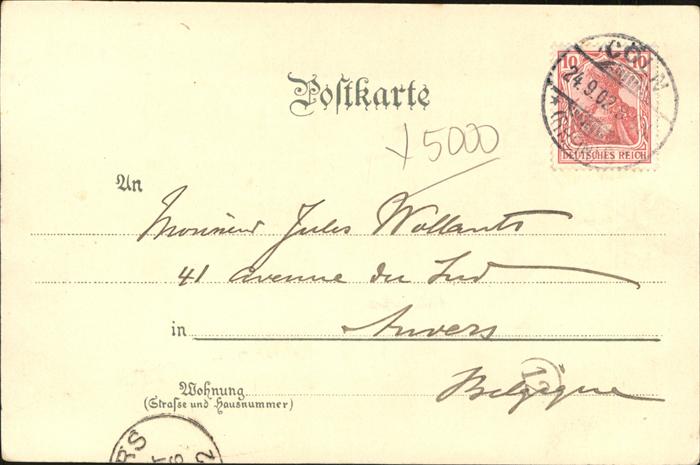 CÖLN
10 10
24.9.02
DEUTSCHES REICH
Postkarte
+5000
An
Monsieur Jules Wollants
41 avenue du Sud
in Anvers
Belgique
12
Wohnung
(Straße und Hausnummer)
RS
2